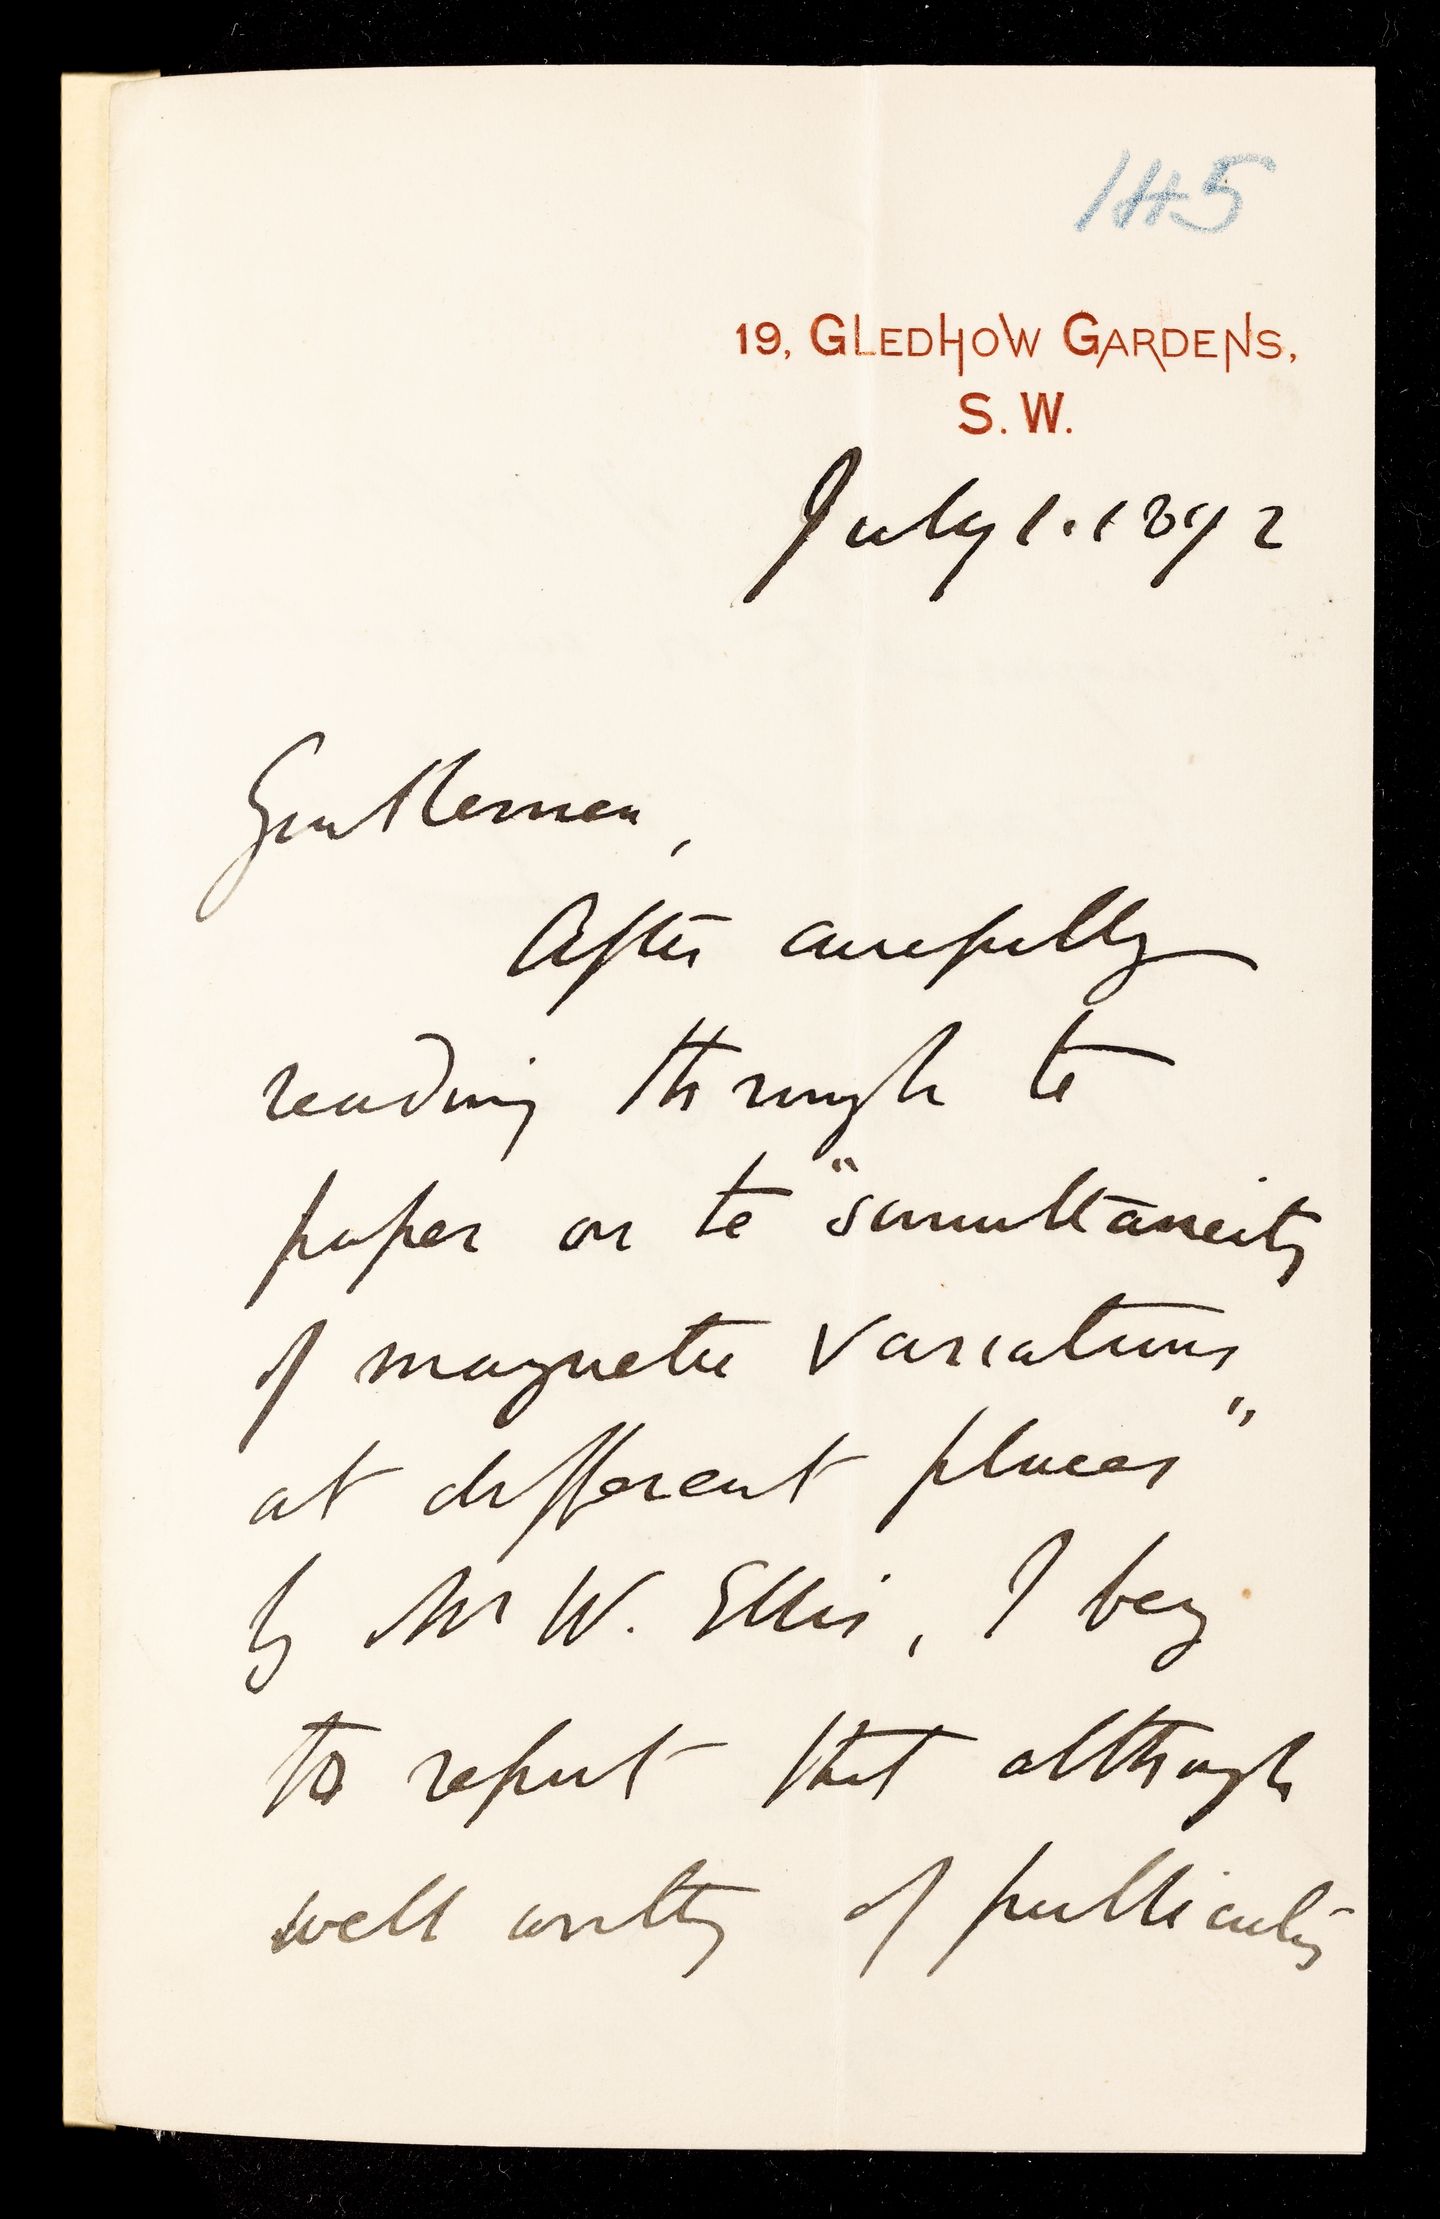 145
19, GLEDHOW GARDENS,
S. W.
July 1. 1892
Gentlemen,
After carefully
reading through the
paper on the "simultaneity
of magnetic variations
at different places"
by Mr W. Ellis, I beg
to report that although
well worthy of publicity